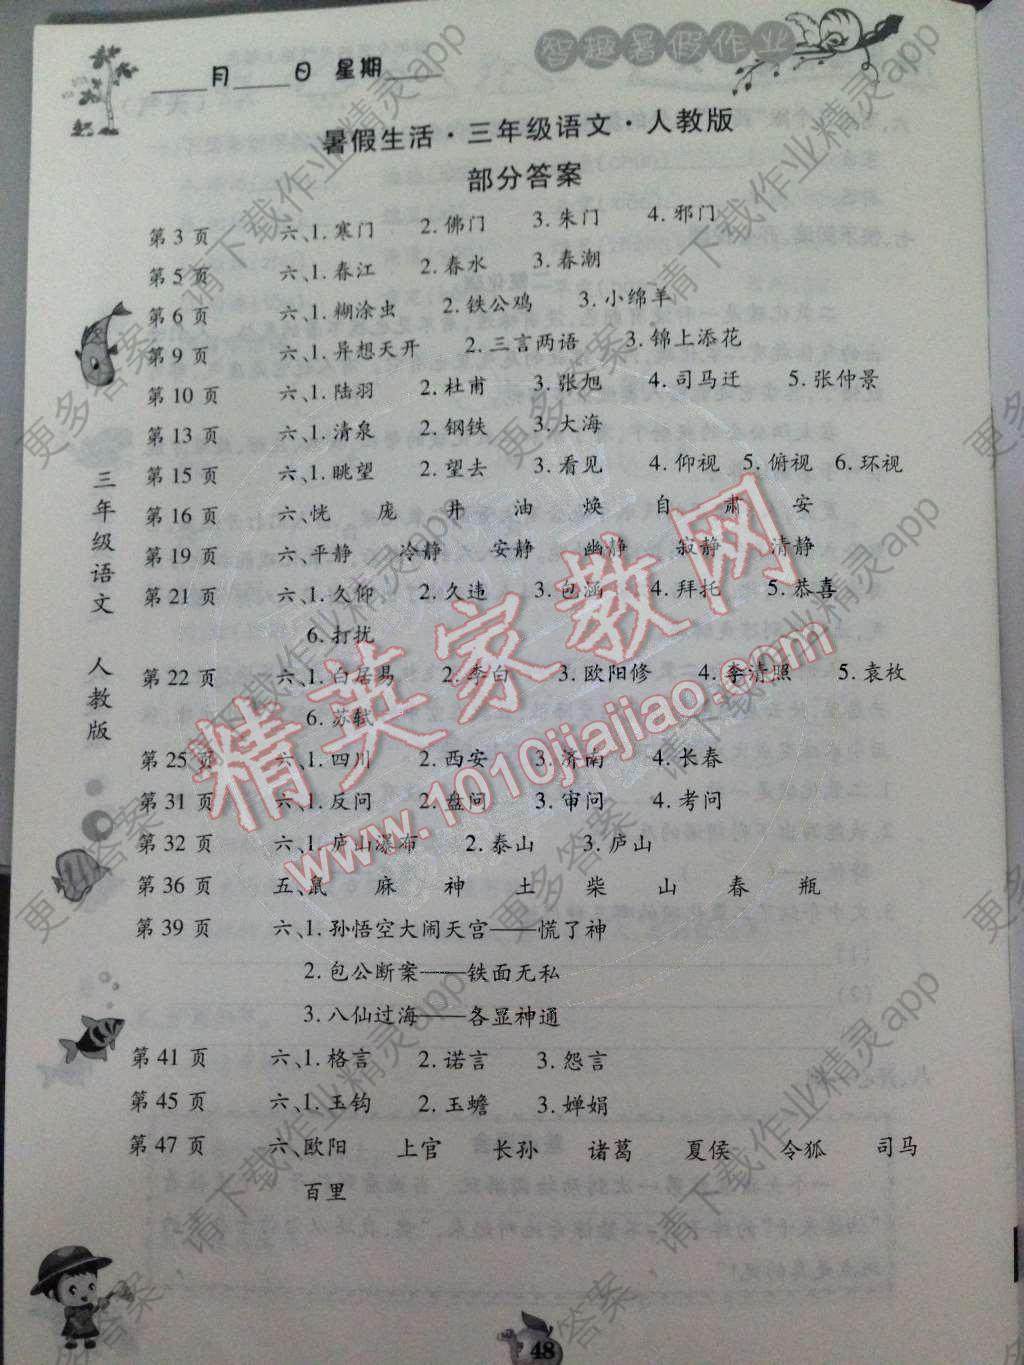 智趣暑假作业
____月____日 星期____
暑假生活·三年级语文·人教版
部分答案
第 3 页 六、1. 寒门 2. 佛门 3. 朱门 4. 邪门
第 5 页 六、1. 春江 2. 春水 3. 春潮
第 6 页 六、1. 糊涂虫 2. 铁公鸡 3. 小绵羊
第 9 页 六、1. 异想天开 2. 三言两语 3. 锦上添花
第 10 页 六、1. 陆羽 2. 杜甫 3. 张旭 4. 司马迁 5. 张仲景
第 13 页 六、1. 清泉 2. 钢铁 3. 大海
第 15 页 六、1. 眺望 2. 望去 3. 看见 4. 仰视 5. 俯视 6. 环视
第 16 页 六、恍 庞 井 油 焕 自 肃 安
第 19 页 六、平静 冷静 安静 幽静 寂静 清静
第 21 页 六、1. 久仰 2. 久违 3. 包涵 4. 拜托 5. 恭喜
6. 打扰
第 22 页 六、1. 白居易 2. 李白 3. 欧阳修 4. 李清照 5. 袁枚
6. 苏轼
第 25 页 六、1. 四川 2. 西安 3. 济南 4. 长春
第 31 页 六、1. 反问 2. 盘问 3. 审问 4. 考问
第 32 页 六、1. 庐山瀑布 2. 泰山 3. 庐山
第 36 页 五、鼠 麻 神 土 柴 山 春 瓶
第 39 页 六、1. 孙悟空大闹天宫——慌了神
2. 包公断案——铁面无私
3. 八仙过海——各显神通
第 41 页 六、1. 格言 2. 诺言 3. 怨言
第 45 页 六、1. 玉钩 2. 玉蟾 3. 婵娟
第 47 页 六、欧阳 上官 长孙 诸葛 夏侯 令狐 司马
百里
三年级语文 人教版
48
精英家教网
www.1010jiajiao.com
更多答案，请下载作业精灵app